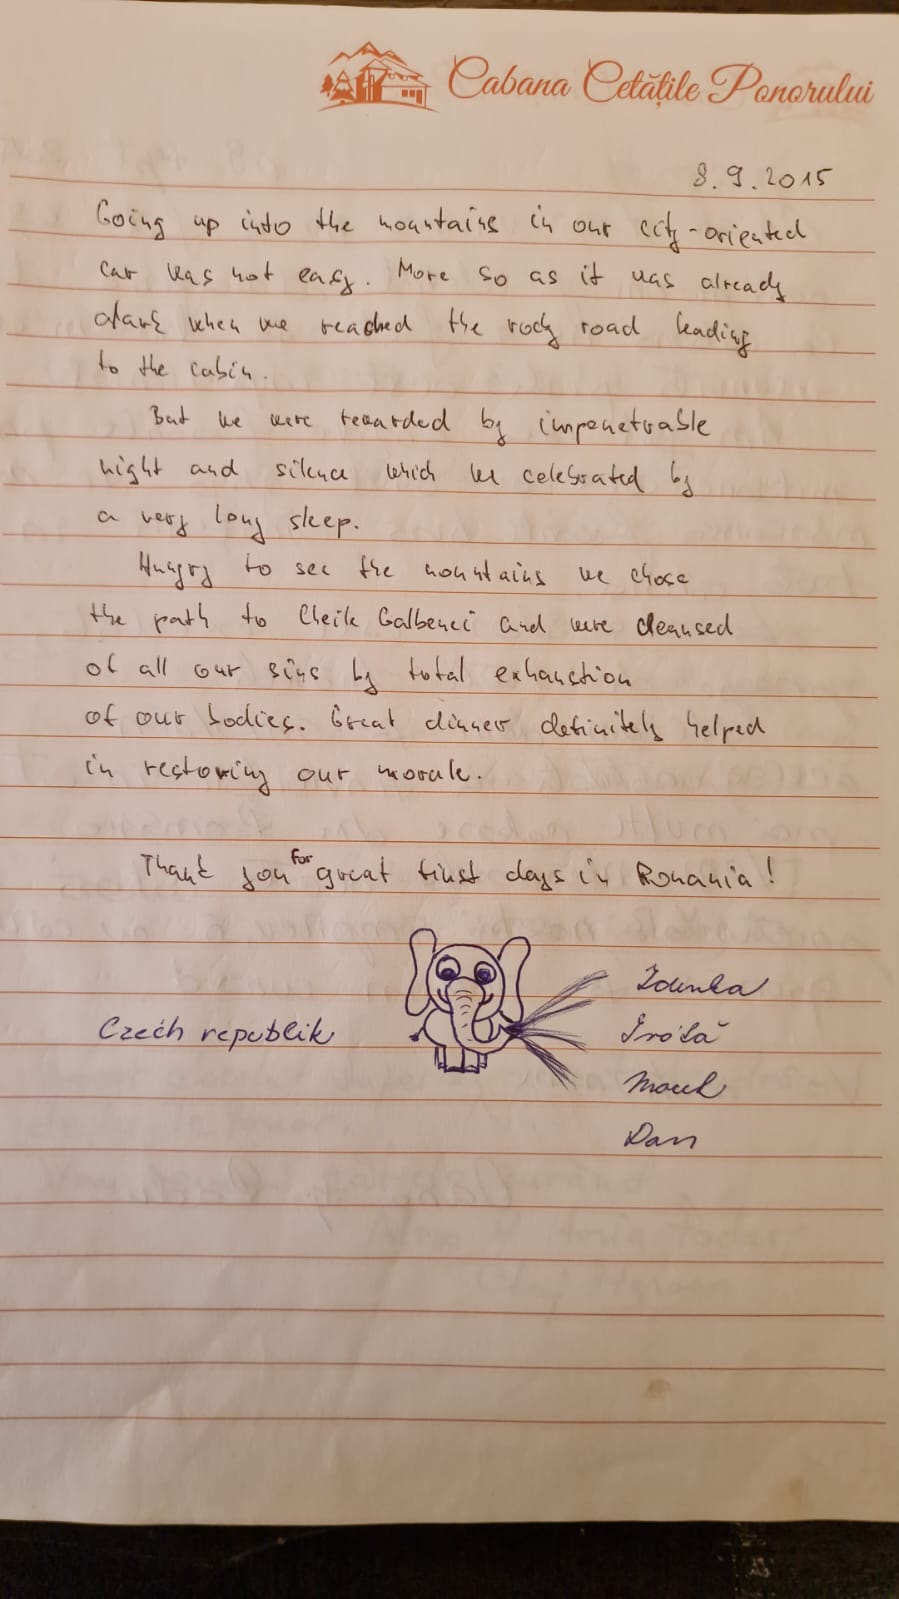 Cabana Cetățile Ponorului
8.9.2015
Going up into the mountains in our city-oriented
car was not easy. More so as it was already
dark when we reached the rocky road leading
to the cabin.
But we were rewarded by impenetrable
night and silence which we celebrated by
a very long sleep.
Hungry to see the mountains we chose
the path to Cheile Galbenei and were cleansed
of all our sins by total exhaustion
of our bodies. Great dinner definitely helped
in restoring our morale.
Thank you for great first days in Romania!
Zdenka
Czech republik
Marek
Dan